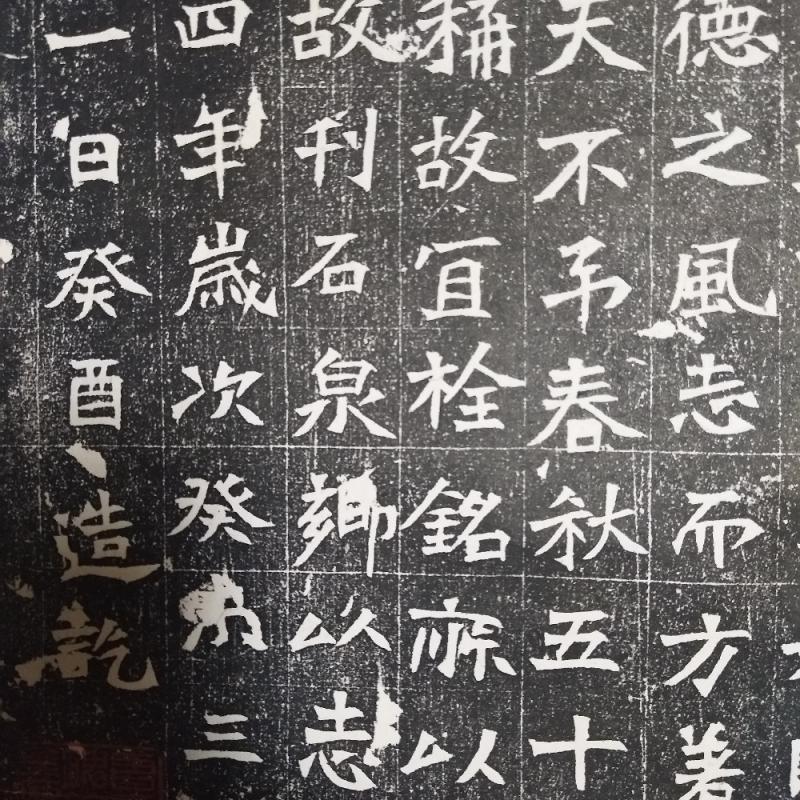 徳之風志而方著
天不弔春秋五十
稱故冝栓銘以
故刊石泉以志
四年歲次癸三
一日癸酉造訖